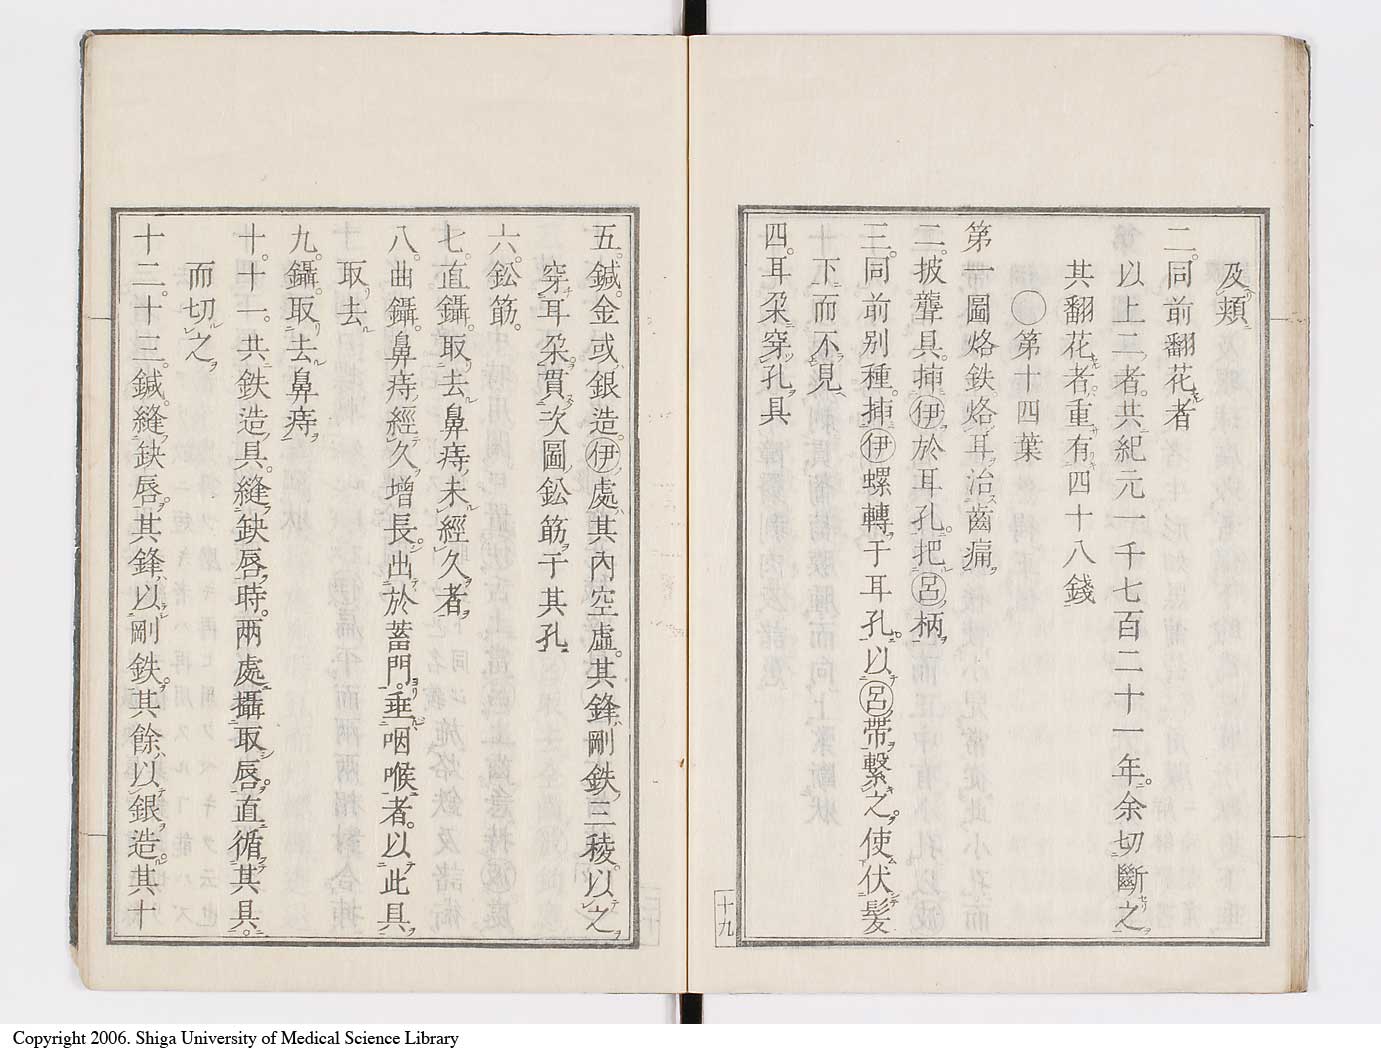 及頬
二。同前翻花者
以上二者。共紀元一千七百二十一年。余切斷之
其翻花者。重有四十八錢
◯第十四葉
第一圖烙鉄。烙耳治齒痛
二。披聾具。揷㋑伊於耳孔。把呂柄
三。同前別種。揷伊螺轉于耳孔。以呂帶繫之。使伏髪
下而不見
四。耳朶穿孔具
十九
五。鍼。金或銀造。伊處其內空虛。其鋒剛鉄三稜。以之
穿耳朶。貫次圖鈆筋于其孔
六。鈆筋。
七。直鑷。取去鼻痔未經久者
八。曲鑷。鼻痔經久。增長出於蓄門。垂咽喉者。以此具
取去
九。鑷。取去鼻痔
十。十一。共鉄造具。縫缺唇時。兩處攝取唇。直循其具。
而切之
十二。十三。鍼。縫缺唇。其鋒以剛鉄。其餘以銀造。其十
Copyright 2006. Shiga University of Medical Science Library